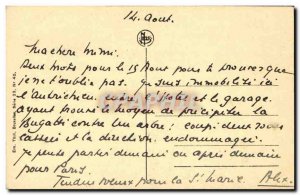 14. Aout.
ma chère Mimi.
Deux mots pour le 15 Aout pour te prouver que
je ne t'oublie pas. Je suis immobilisé ici
entre l'hôtel et le garage.
ayant trouvé le moyen de précipiter la
Bugatti contre un arbre: coupé deux roues
cassées et la direction endommagée.
je pense partir demain ou après demain
pour Paris.
Tendres vœux pour la St. Marie. Alex.